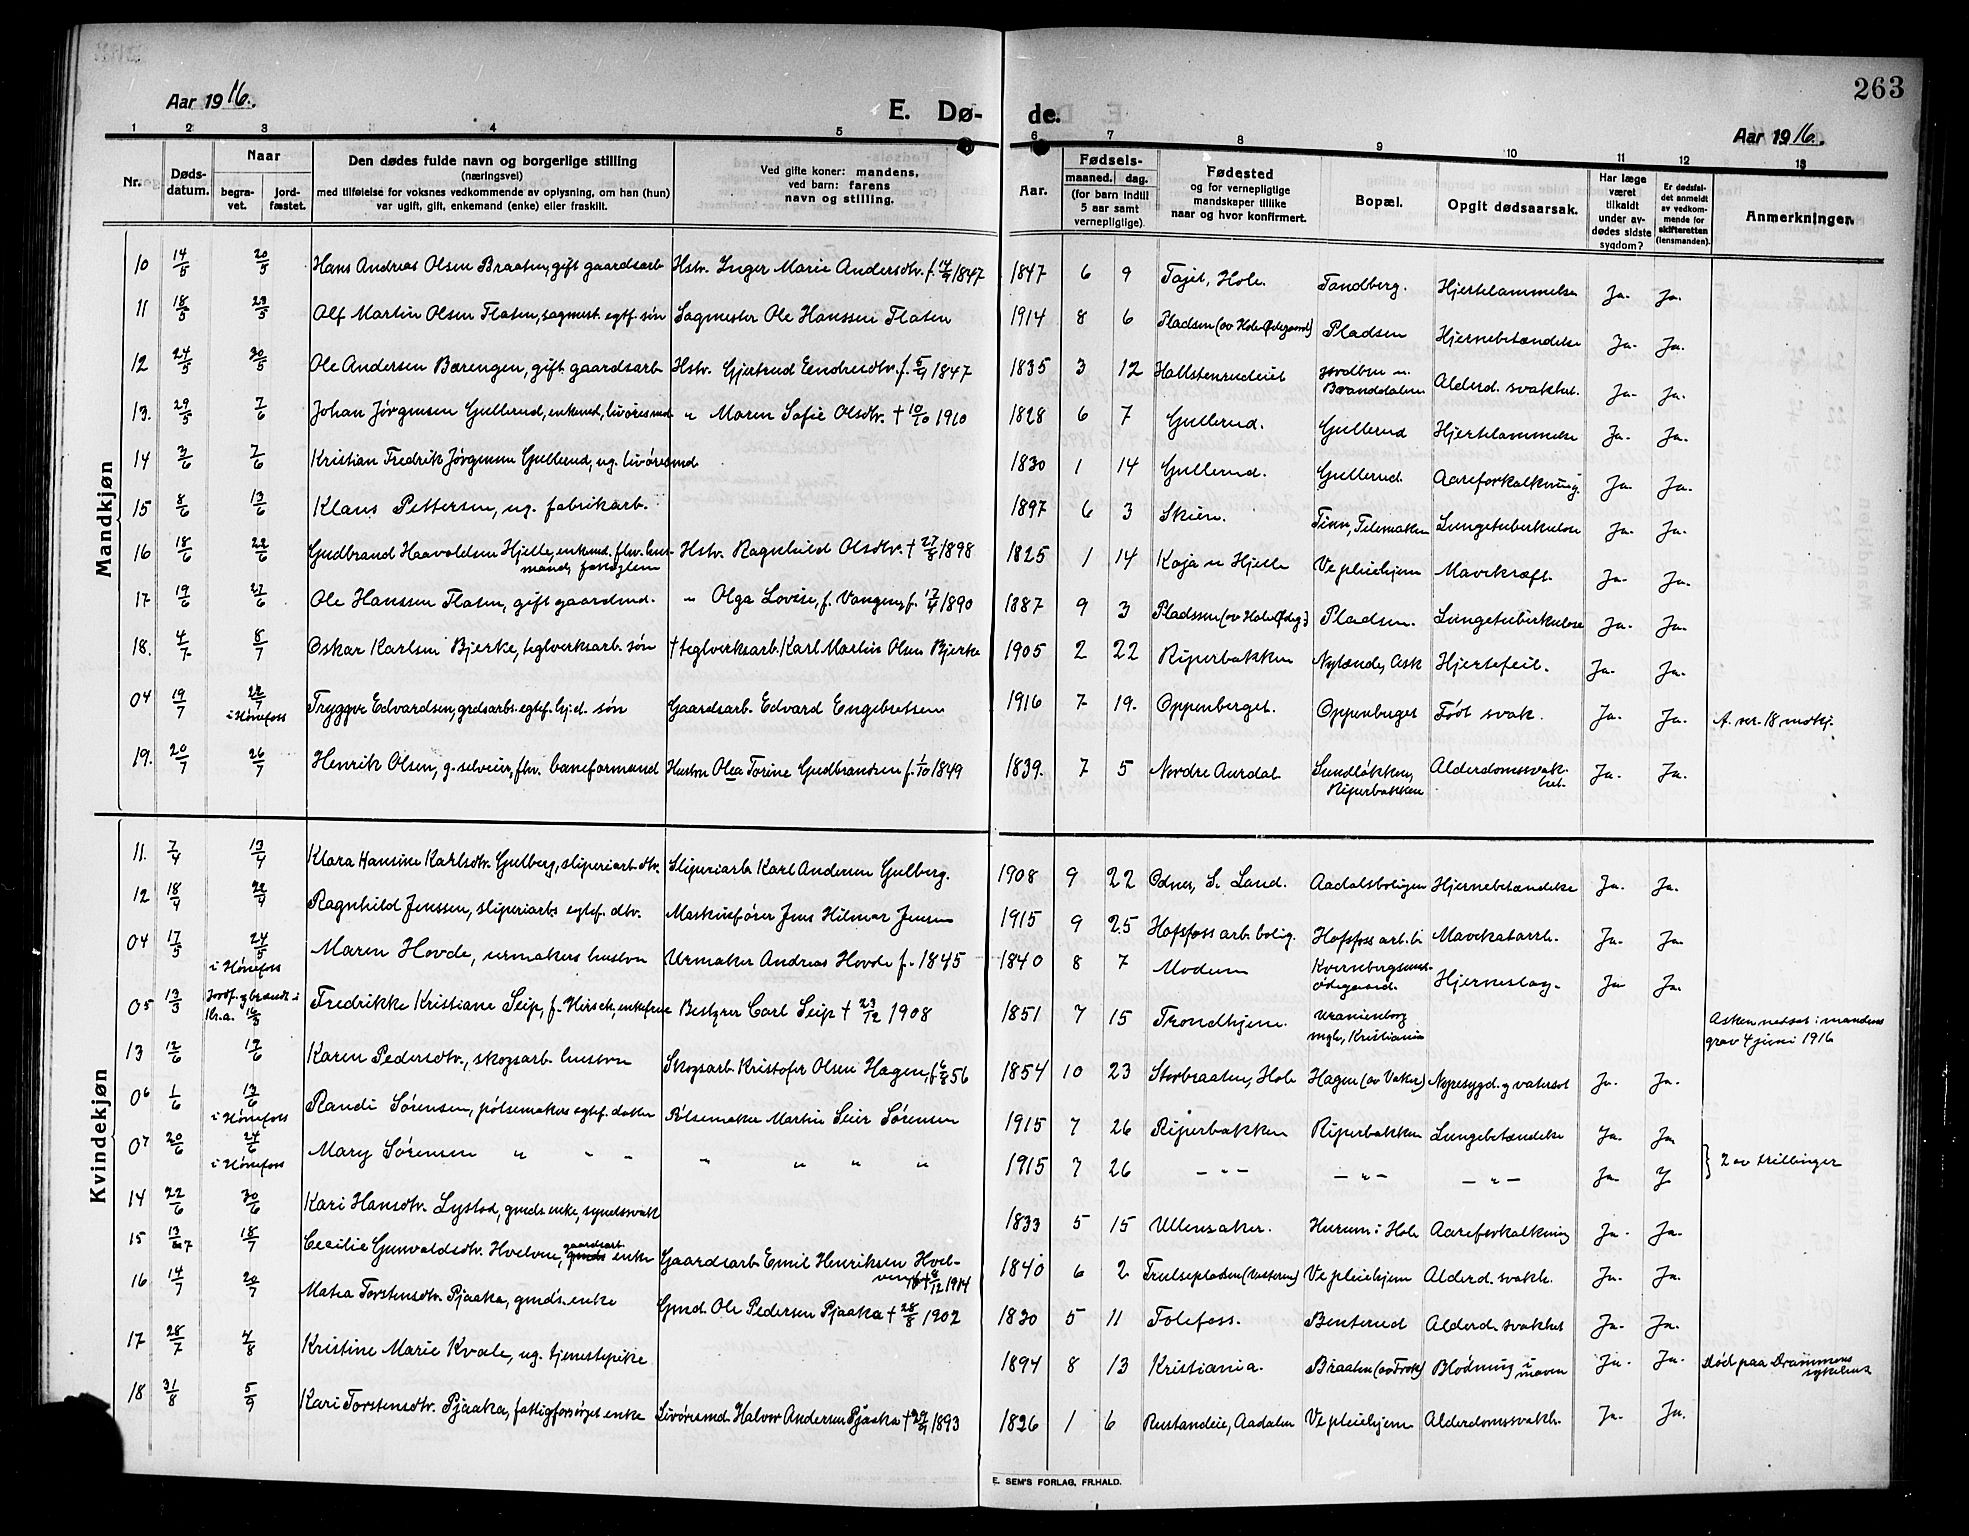 263
Aar 1916.
E. Dø- de.
Aar 1916.
1 2 3 4 5 6 7 8 9 10 11 12 13
Nr. Døds-datum. Naar begra-vet. jord-fæstet. Den dødes fulde navn og borgerlige stilling (næringsvei) med tilføielse for voksnes vedkommende av oplysning, om han (hun) var ugift, gift, enkemand (enke) eller fraskilt. Ved gifte koner: mandens, ved barn: farens navn og stilling. Aar. Fødsels- maaned. dag. (for barn indtil 5 aar samt vernepligtige). Fødested og for vernepligtige mandskaper tillike naar og hvor konfirmert. Bopæl. Opgit dødsaarsak. Har læge været tilkaldt under av-dødes sidste sygdom? Er dødsfal-det anmeldt av vedkom-mende for skifteretten (lensmanden). Anmerkninger.
Mandkjøn
10 14/5 20/5 Hans Andreas Olsen Braaten, gift gaardsarb Hstr. Inger Marie Andersdtr. f. 14/9 1847 1847 6 9 Hole. Tandberg. Hjertelammelse Ja. Ja.
11 18/5 23/5 Olf Martin Olsen Flaten, sagmest. egtf. søn Sagmester Ole Hanssen Flaten 1914 8 6 Pladsen (av Hole Ødegaard) Pladsen Hjernebetændelse Ja. Ja.
12 24/5 30/5 Ole Andersen Bærengen, gift gaardsarb Hstr. Gjertrud Eendresdtr. f. 5/9 1847 1835 3 12 Hallstenrudeiet Branddalen Alderd. svakhet. Ja. Ja.
13. 29/5 7/6 Johan Jørgensen Gullerud, enkemd, livøresmd " Maren Sofie Olsdtr. † 10/10 1910 1828 6 7 Gullerud. Gullerud Hjertelammelse Ja. Ja.
14 3/6 7/6 Kristian Fredrik Jørgensen Gullerud, ug. livøresmd 1830 1 14 Gullerud. Gullerud. Aareforkalkning. Ja. Ja.
15 8/6 13/6 Klaus Pettersen, ug. fabrikarb. 1897 6 3 Skien. Tinn, Telemaken Lungetuberkulose Ja. Ja.
16 18/6 22/6 Gudbrand Haavoldsen Hjelle, enkemd. fhv. hus-mand, fattiglem Hstr. Ragnhild Olsdtr. † 27/8 1898 1825 1 14 Koja u Hjelle Ve pleiehjem Mavekræft. Ja. Ja.
17 19/6 27/6 Ole Hanssen Flaten, gift gaardmd. " Olga Lovise, f. Vangen, f. 17/4 1890 1887 9 3 Pladssen (av Hole Ødeg.) Pladsen. Lungetuberkulose Ja. Ja.
18. 4/7 8/7 Oskar Karlsen Bjerke, teglverksarb. søn † teglverksarb. Karl Martin Olsen Bjerke 1905 2 22 Riperbakken Nylænde, Ask Hjertefeil. Ja. Ja.
04 19/7 22/7 i Hønefoss Tryggve Edvardsen, grdsarbs. egtf. hj.d. søn Gaardsarb. Edvard Engebretsen 1916 7 19. Oppenberget. Oppenberget Født svak. Ja. Ja. A. nr. 18 mdkj.
19. 20/7 26/7 Henrik Olsen, g. selveier, fhv. baneformand Hustru Olea Torine Gudbrandsen f. 1/10 1849 1839. 7 5 Nordre Aurdal Sundløkken, Riperbakken Alderdomssvak-het. Ja. Ja.
Kvindekjøn
11. 7/4 13/4 Klara Hansine Karlsdtr. Gulberg, sliperiarb. dtr. Sliperiarb. Karl Andersen Gulberg. 1908 9 22 Odnes, S. Land. Aadalsboligen Hjernebetændelse Ja. Ja.
12 18/4 22/4 Ragnhild Jenssen, sliperiarbs egtef. dtr. Maskinfører Jens Hilmar Jensen 1915 9 25 Hofsfoss arb. bolig. Hofsfoss arb. b. Mavekatarrh. Ja. Ja.
04 17/5 24/5 i Hønefoss Maren Hovde, urmakers hustru Urmaker Andreas Hovde f. 1845 1840 8 7 Modum Kvernbergsund Ødegaard. Hjerneslag. Ja Ja.
05 13/3 Jordf. og brændt i Kr.a. 16/3 Fredrikke Kristiane Seip, f. Hirsch, enkefrue Bestyrer Carl Seip † 23/12 1908 1851 7 15 Trondhjem. Uranienborg mgh., Kristiania Asken nedsat i mandens grav 4 juni 1916
13 12/6 17/6 Karen Pedersdtr., skogsarb. hustru Skogsarb. Kristofer Olsen Hagen, f. 6/8 56 1854 10 23 Storbraaten, Hole Hagen (av Vaker) Nyresygd. og vatersot Ja. Ja.
06 1/6 13/6 i Hønefoss Randi Sørensen, pølsemakers egtef. datter Pølsemaker Martin Seir Sørensen 1915 7 26 Riperbakken Riperbakken Lungebetændelse Ja. Ja
07 20/6 24/6 i Hønefoss Mary Sørensen " " " " " " " 1915 7 26 - " - - " - - " - Ja J. } 2 av trillinger
14 22/6 30/6 Kari Hansdtr. Lystad, gmds. enke, syndsvak 1833 5 15 Ullensaker. Hurum i Hole Aareforkalkning Ja. Ja.
15 13/7 18/7 Cecilie Gunvaldsdtr. Hvelven, gaardsarb. enke Gaardsarb. Emil Henriksen Hvel-ven † 8/12 1914 1840 6 2 Trulsepladsen (Vesteren) Ve pleiehjem Alderd. svakh. Ja. Ja.
16 14/7 20/7 Matea Torstensdtr. Pjaaka, gmd's. enke Gmd. Ole Pedersen Pjaaka † 28/8 1902 1830 5 11 Tolefoss. Benterud Alderd. svakhet Ja. Ja.
17 28/7 4/8 Kristine Marie Kvale, ug. tjenestepike 1894 8 13 Kristiania. Braaten (av Frok) Blødning i maven Ja. Ja. død paa Drammens sykehus
18 31/8 5/9 Kari Torstensdtr. Pjaaka, fattigforsørget enke Livøresmd Halvor Andersen Pjaaka † 1893 1826 1 6 Rustandeie, Aadalen Ve pleiehjem Alderdomssvakh. Ja. Ja.
E. SEM'S FORLAG, FR.HALD.